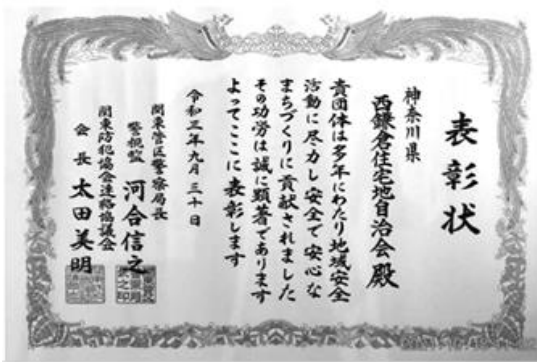 表彰状
神奈川県
西鎌倉住宅地自治会殿
貴団体は多年にわたり地域安全
活動に尽力し安全で安心な
まちづくりに貢献されました
その功労は誠に顕著であります
よってここに表彰します
令和三年九月三十日
関東管区警察局長
警視監 河合信之
関東防犯協会連絡協議会
会長 太田美明